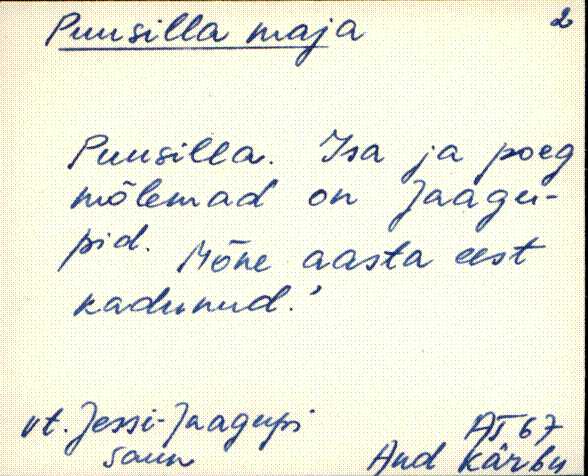 Puusilla maja 2
Puusilla. Isa ja poeg
mõlemad on Jaagu-
pid. Mõne aasta eest
kadunud.'
vt. Jessi-Jaagupi
saun
AT 67
And Kärbu